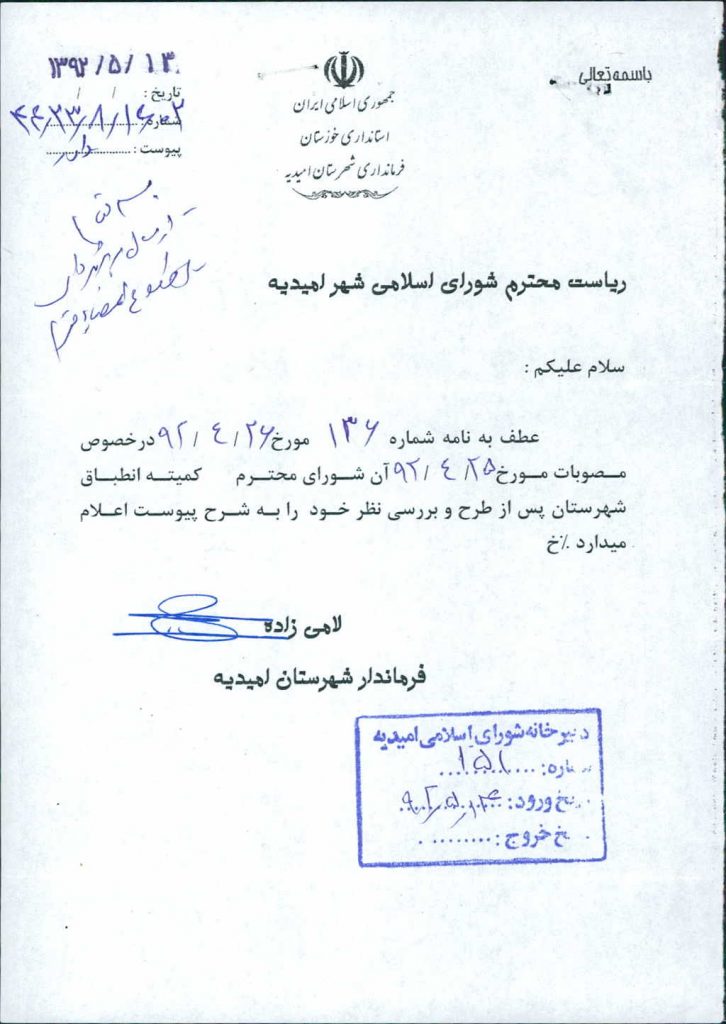 باسمه تعالی
جمهوری اسلامی ایران
استانداری خوزستان
فرمانداری شهرستان امیدیه
۱۳۹۲/۵/۱۳
تاریخ : / /
شماره:
پیوست : دارد
ریاست محترم شورای اسلامی شهر امیدیه
سلام علیکم :
عطف به نامه شماره ۱۳۶ مورخ ۹۲/۴/۲۶ درخصوص
مصوبات مورخ ۹۲/۴/۲۵ آن شورای محترم کمیته انطباق
شهرستان پس از طرح و بررسی نظر خود را به شرح پیوست اعلام
میدارد ٪خ
لامی زاده
فرماندار شهرستان امیدیه
دبیرخانه شورای اسلامی امیدیه
شماره: ۱۵۱
تاریخ ورود:
تاریخ خروج :